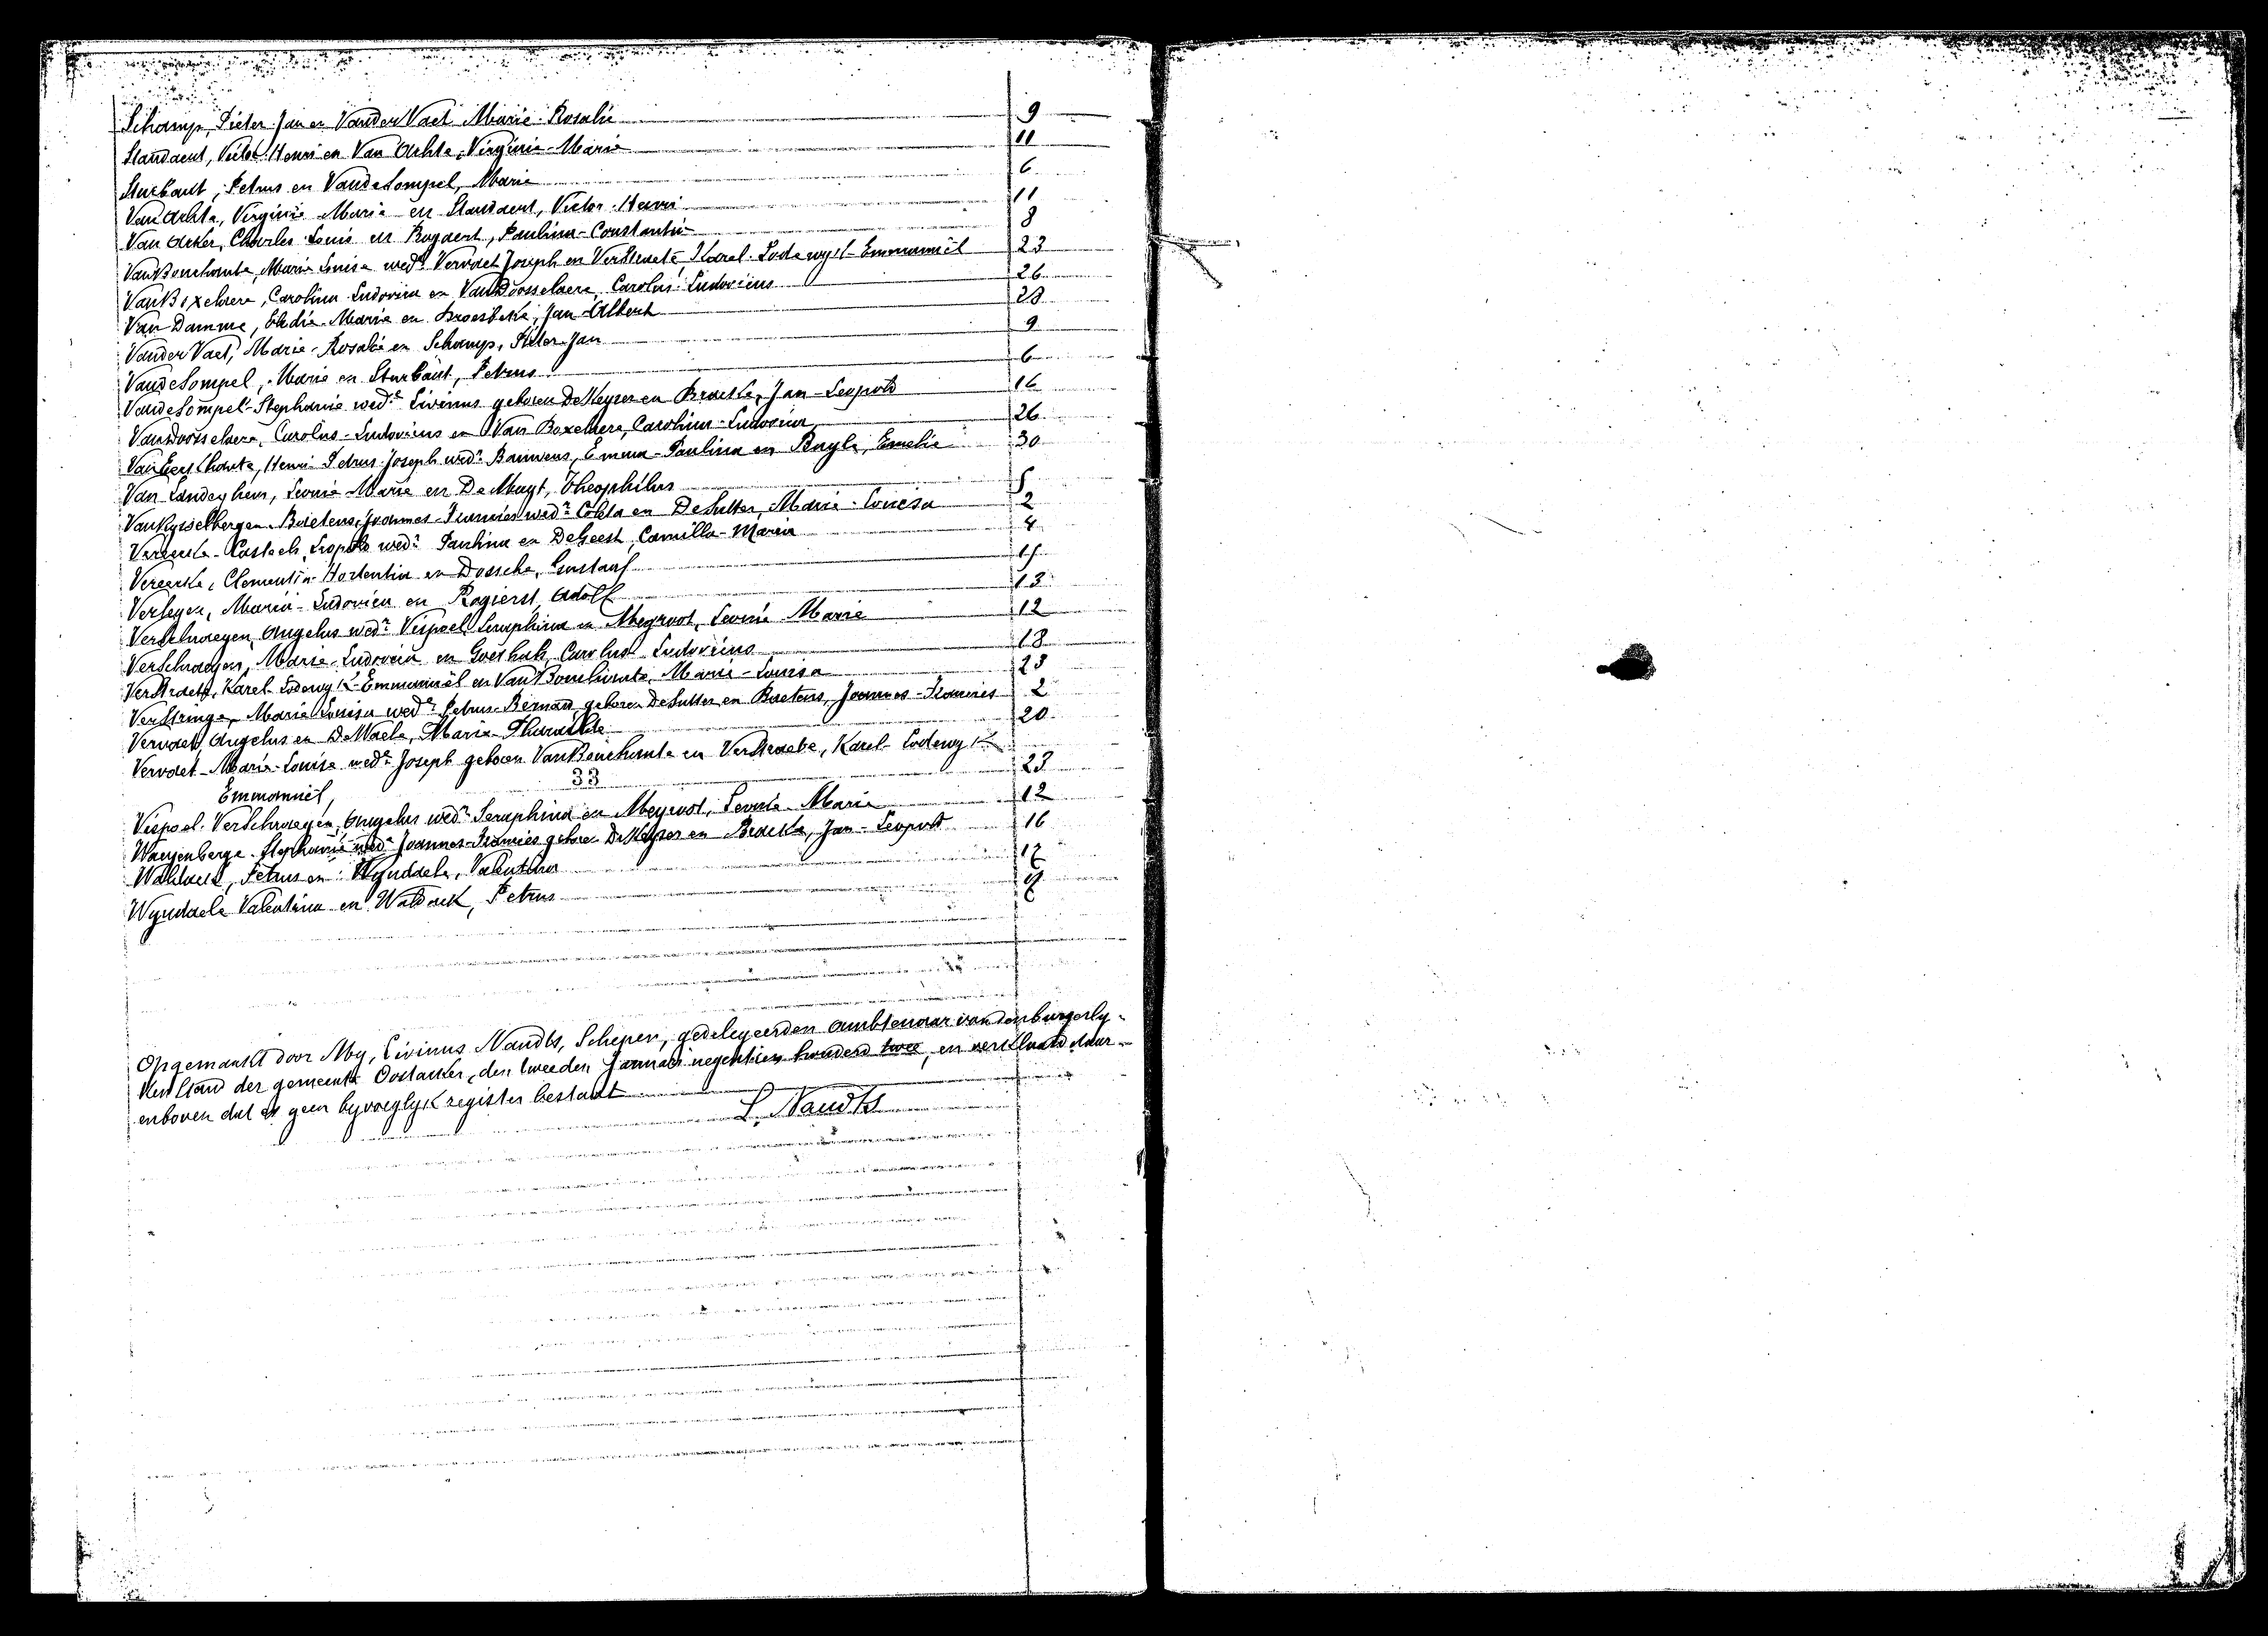 Schamp, Pieter Jan en VanderVaet Marie-Rosalie 9
Standaert, Victor-Henri en Van Achte, Virginie-Marie 11
Sturbaut, Petrus en VandeSompel, Marie 6
Van Achte, Virginie Marie en Standaert, Victor-Henri 11
Van Acker, Charles Louis en Rogaert, Paulina-Constantia 8
VanBouchaute, Marie Louisa wedᵉ Vervaet Joseph en VerStraete, Karel-Lodewyk-Emmanuël 23
VanBoxelaere, Carolina Ludovica en VanDoosselaere, Carolus Ludovicus 26
Van Damme, Elodie-Marie en Broesbeke, Jan Albert 28
VanderVaet, Marie-Rosalie en Schamp, Pieter-Jan 9
VandeSompel, Marie en Sturbaut, Petrus 6
VandeSompel-Stephanie wedᵉ Livinus geboren DeKeyser en Braecke, Jan-Leopold 16
VanDoosselaere, Carolus-Ludovicus en Van Boxelaere, Carolina-Ludovica 26
VanEeckhaute, Henri Petrus Joseph wedʳ Bauwens, Emma-Paulina en Buyle, Emelie 30
Van Landeghem, Leonie Marie en De Muyt, Theophilus 5
VanRysselbergen-Baetens, Joannes-Francies wedʳ Coleta en DeSutter, Marie-Louisa 2
Vereecke-Casteels, Leopold wedʳ Paulina en DeGeest, Camilla-Maria 4
Vereecke, Clementia-Hortentia en Dossche, Gustaaf 15
Verleyen, Maria-Ludovica en Rogierst, Adolf 13
Verschraegen, Angelus wedʳ Vispoel Seraphina en Meyvort, Leonie Marie 12
Verschraegen, Marie-Ludovica en Goethals, Carolus Ludovicus 18
VerStraete, Karel-Lodewyk-Emmanuël en VanBouchaute, Marie-Louisa 23
VerStringe, Marie Louisa wedᵉ Petrus-Bernard geboren DeSutter en Baetens, Joannes-Francies 2
Vervaet, Angelus en DeWaele, Marie 20
Vervaet-Marie-Louise wedᵉ Joseph geboren VanBouchaute en VerStraete, Karel-Lodewyk
Emmanuël, 23
33
Vispoel-Verschraegen, Angelus wedʳ Seraphina en Meyvort, Leonie-Marie 12
Waeyenberge-Stephanie wedᵉ Joannes-Francies geboren DeKeyser en Braecke, Jan-Leopold 16
Waldack, Petrus en Wyndaele, Valentina 17
Wyndaele Valentina en Waldack, Petrus
Opgemaakt door My, Livinus Naudts, Schepen, gedelegeerden Ambtenaar van den burgerly-
ken Stand der gemeente Oostacker, den tweeden Januari negentien honderd twee, en verklaard daar-
enboven dat er geen byvoeglyk register bestaat
L. Naudts